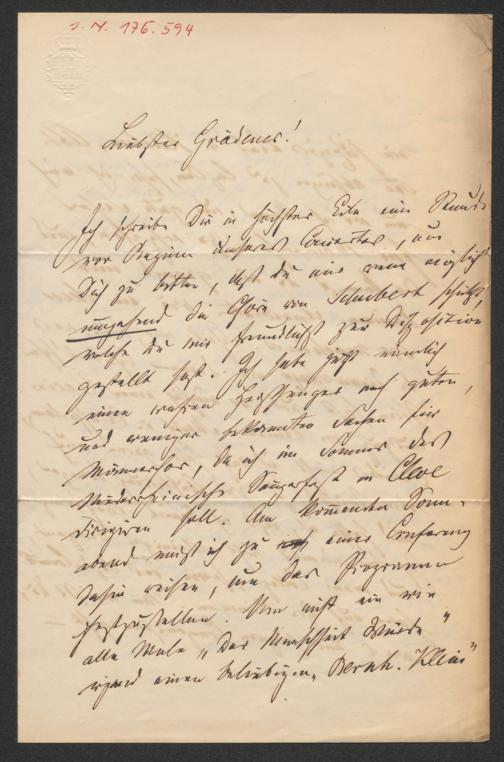 J. N. 176.594
Liebster Grädener!
Ich schreibe Dir in höchster Eile eine Stunde
vor Beginn unseres Concertes, um
Dich zu bitten, daß Du mir wenn möglich
umgehend die Chöre von Schubert schickst,
welche Du mir freundlichst zur Disposition
gestellt hast. Ich habe jetzt nämlich
einen wahren Heißhunger nach guten,
und weniger bekannten Sachen für
Männerchor, da ich im Sommer das
Niederrheinische Sängerfest in Cleve
dirigiren soll. Am kommenden Sonn-
abend muß ich zu einer Conferenz
dahin reisen, um das Programm
festzustellen. Um nicht ein wie
alle Male „Der Menschheit Würde"
irgend einen beliebigen „Bernh. Klein"